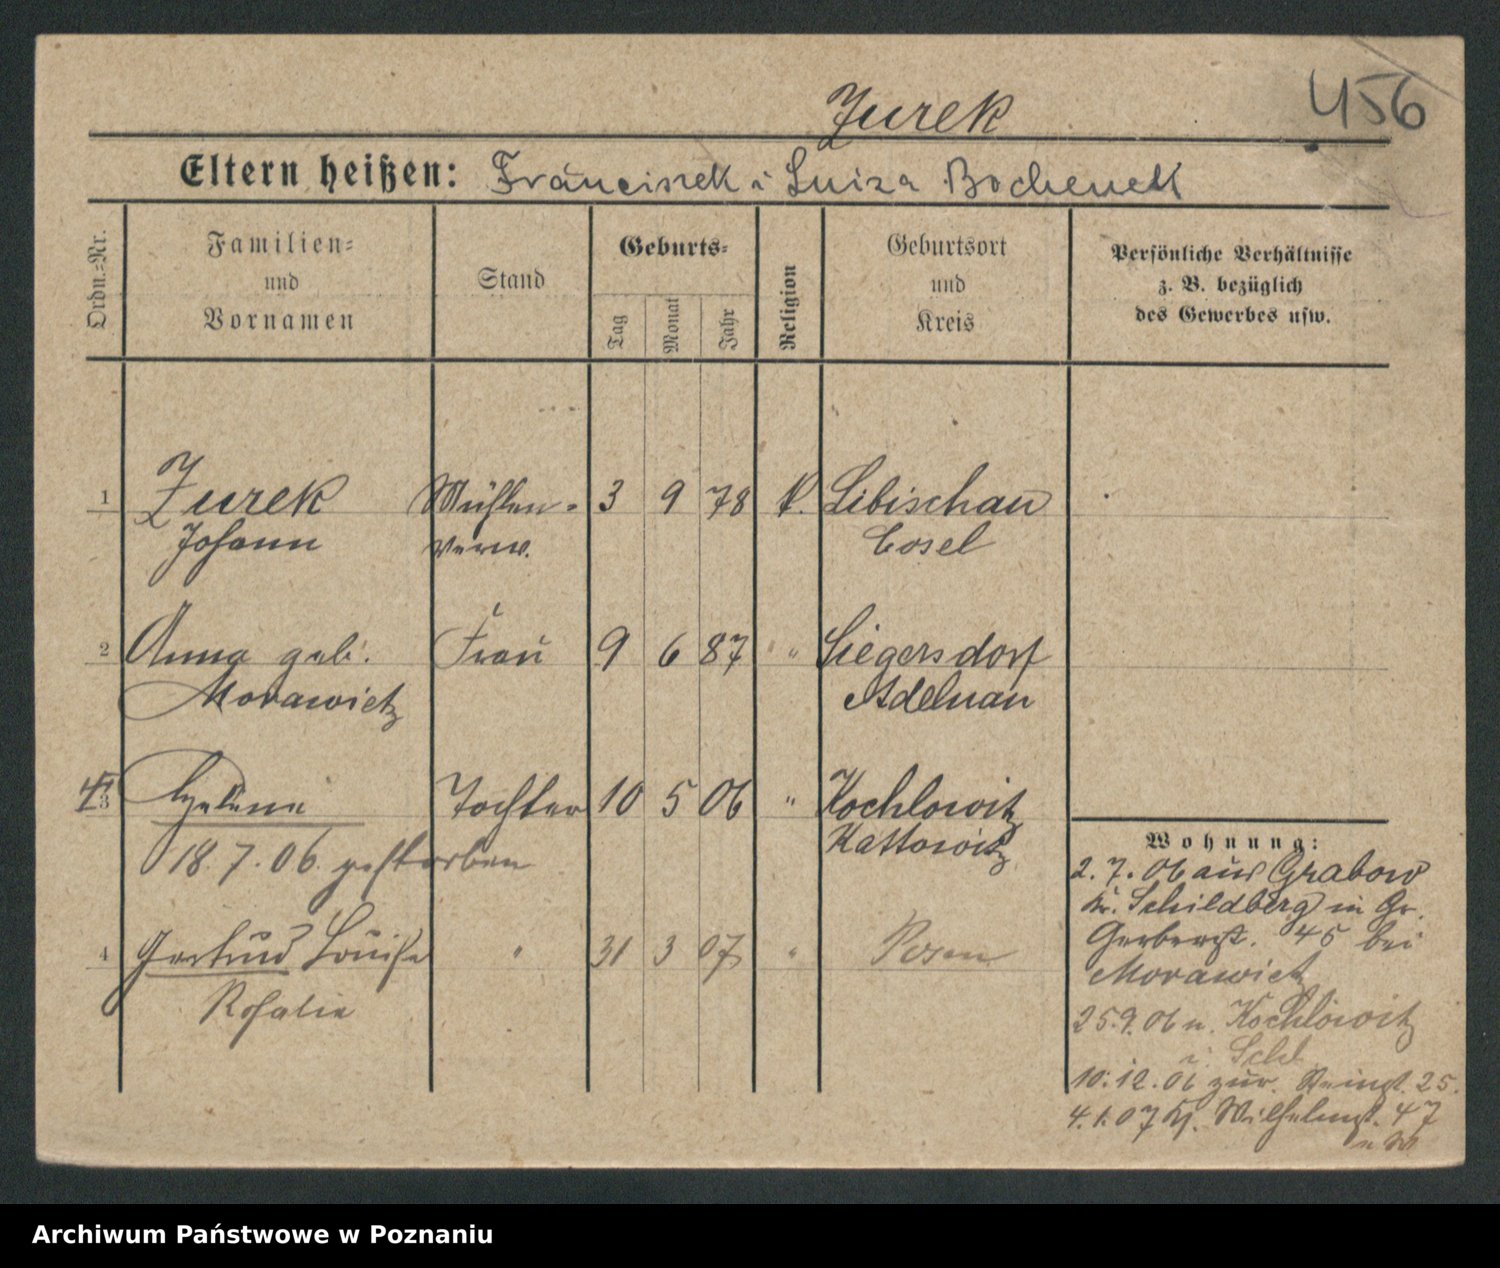 Żurek
456
Eltern heißen: Franciszek i Luiza Bochenek
Ordn.-Nr.
Familien- und Vornamen
Stand
Geburts-
Tag
Monat
Jahr
Religion
Geburtsort und Kreis
Persönliche Verhältnisse z. B. bezüglich des Gewerbes usw.
1 Zurek Mühlen- 3 9 78 k. Libischau
Johann verw. Cosel
2 Anna geb. Frau 9 6 87 " Siegersdorf
Morawietz Adelnau
3 Helene Tochter 10 5 06 " Kochlowitz
Kattowitz
18.7.06. gestorben
4 Gertrud Louise " 31 3 07 " Posen
Rosalie
Wohnung:
2.7.06 aus Grabow
Kr. Schildberg in Gr.
Gerberst. 45 bei
Morawietz
25.9.06 n. Kochlowitz
i. Schl.
10.12.06 zur. 25.
4.1.07 Wilhelmst. 47